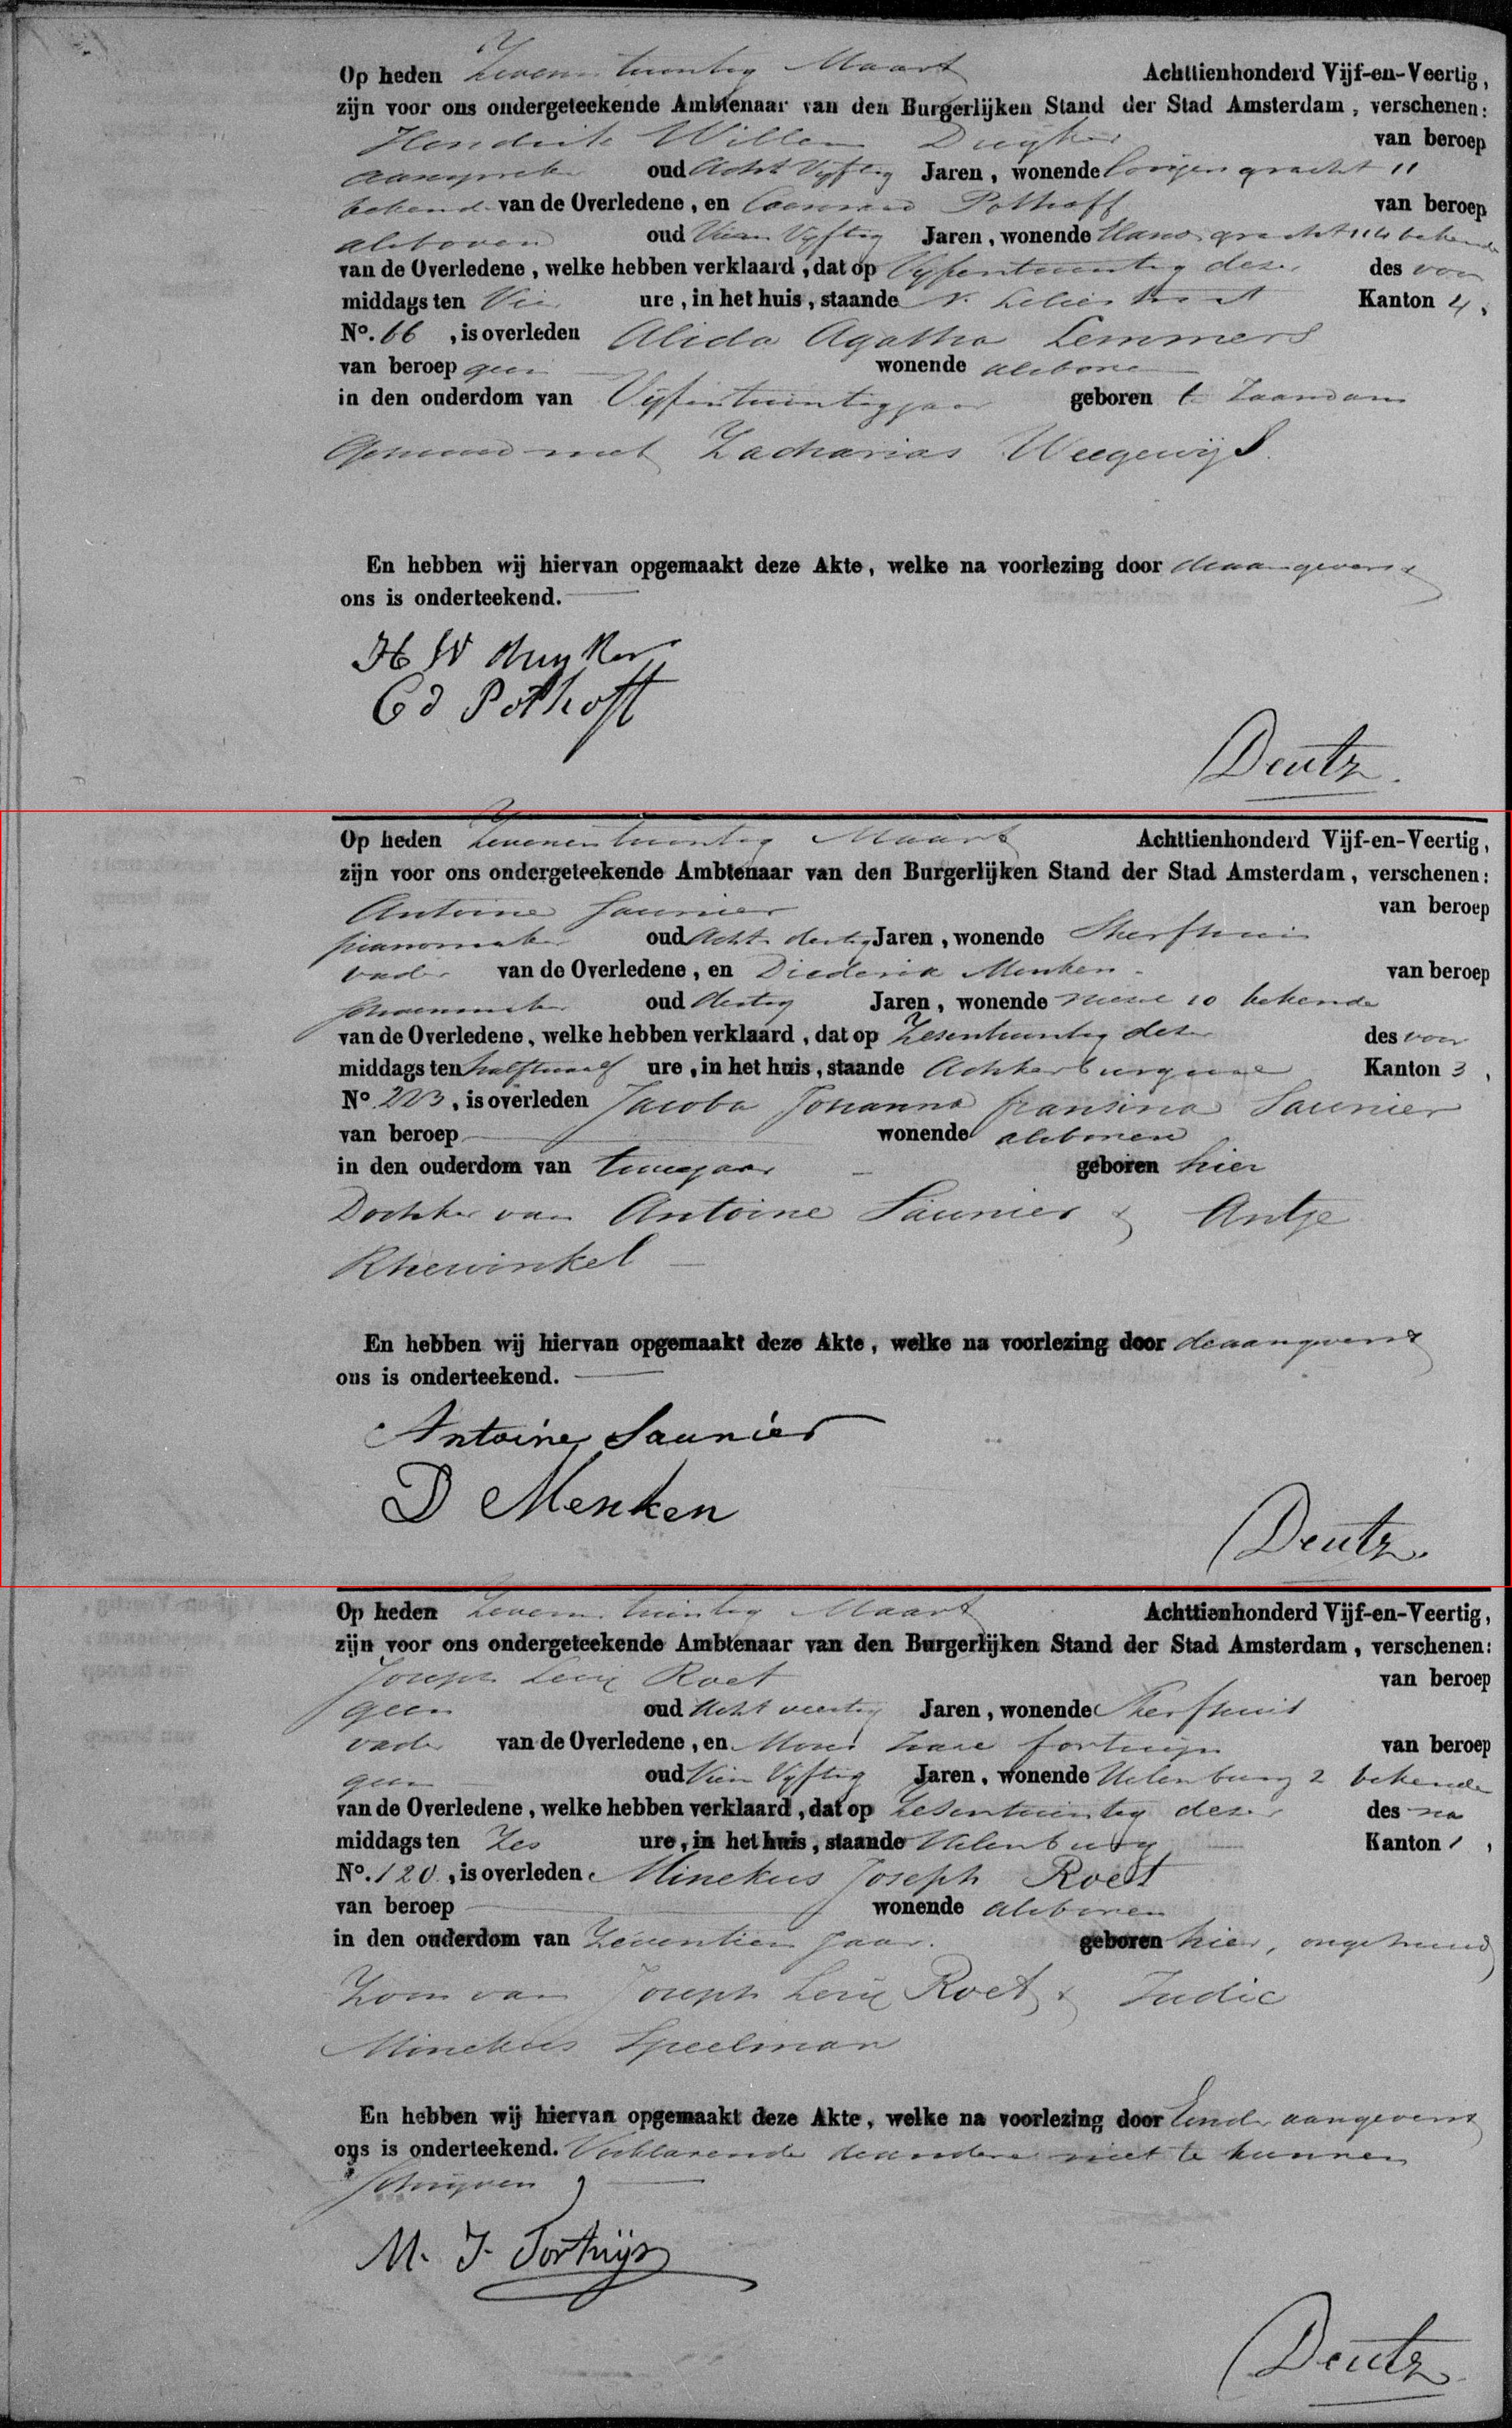 Op heden Zevenentwintig Maart Achttienhonderd Vijf-en-Veertig,
zijn voor ons ondergeteekende Ambtenaar van den Burgerlijken Stand der Stad Amsterdam, verschenen:
Hendrik Willem Duyker van beroep
aanspreker oud Acht Vyftig Jaren, wonende gracht 11
bekende van de Overledene, en Coenraad Pothoff van beroep
alsboven oud Vier Vyftig Jaren, wonende gracht 114 bekende
van de Overledene, welke hebben verklaard, dat op Vyfentwintig dezer des voor
middags ten Vier ure, in het huis, staande N. Leliestraat Kanton 4,
No. 66, is overleden Alida Agatha Lemmers
van beroep geen wonende alsboven
in den ouderdom van Vyfentwintig jaar geboren te Zaandam
Gehuwd met Zacharias Weegewijs.
En hebben wij hiervan opgemaakt deze Akte, welke na voorlezing door de aangevers &
ons is onderteekend.
H W Duyker
Cd Pothoff
Deutz.
Op heden Zevenentwintig Maart Achttienhonderd Vijf-en-Veertig,
zijn voor ons ondergeteekende Ambtenaar van den Burgerlijken Stand der Stad Amsterdam, verschenen:
Antoine Saunier van beroep
pianomaker oud Acht dertig Jaren, wonende Sterfhuis
vader van de Overledene, en Diederik Menken van beroep
schoenmaker oud dertig Jaren, wonende 10 bekende
van de Overledene, welke hebben verklaard, dat op Zesentwintig dezer des voor
middags ten halftwaalf ure, in het huis, staande Achterburgwal Kanton 3,
No. 223, is overleden Jacoba Johanna Fransina Saunier
van beroep wonende alsboven
in den ouderdom van twee jaar geboren hier
Dochter van Antoine Saunier & Antje
Rhewinkel
En hebben wij hiervan opgemaakt deze Akte, welke na voorlezing door de aangevers &
ons is onderteekend.
Antoine Saunier
D Menken
Deutz.
Op heden Zevenentwintig Maart Achttienhonderd Vijf-en-Veertig,
zijn voor ons ondergeteekende Ambtenaar van den Burgerlijken Stand der Stad Amsterdam, verschenen:
Joseph Levie Roet van beroep
geen oud Acht veertig Jaren, wonende Sterfhuis
vader van de Overledene, en Mozes Izaac Fortuijn van beroep
geen oud Vier Vyftig Jaren, wonende Uilenburg 2 bekende
van de Overledene, welke hebben verklaard, dat op Zesentwintig dezer des na
middags ten Zes ure, in het huis, staande Uilenburg Kanton 1,
No. 120, is overleden Minekus Joseph Roet
van beroep wonende alsboven
in den ouderdom van Zeventien Jaar. geboren hier, ongehuwd
Zoon van Joseph Levie Roet & Judic
Minekus Speelman
En hebben wij hiervan opgemaakt deze Akte, welke na voorlezing door Eender aangevers &
ons is onderteekend. Verklarende de andere niet te kunnen
schrijven
M. J. Fortuijn
Deutz